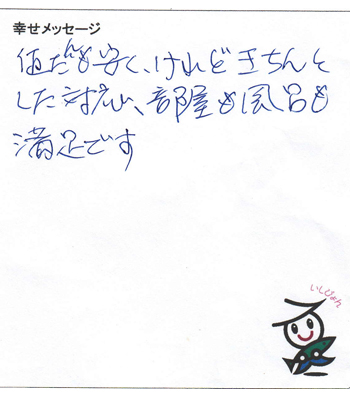 幸せメッセージ
値だんも安く、けれどきちんと
した対応、部屋も風呂も
満足です
いしぴょん